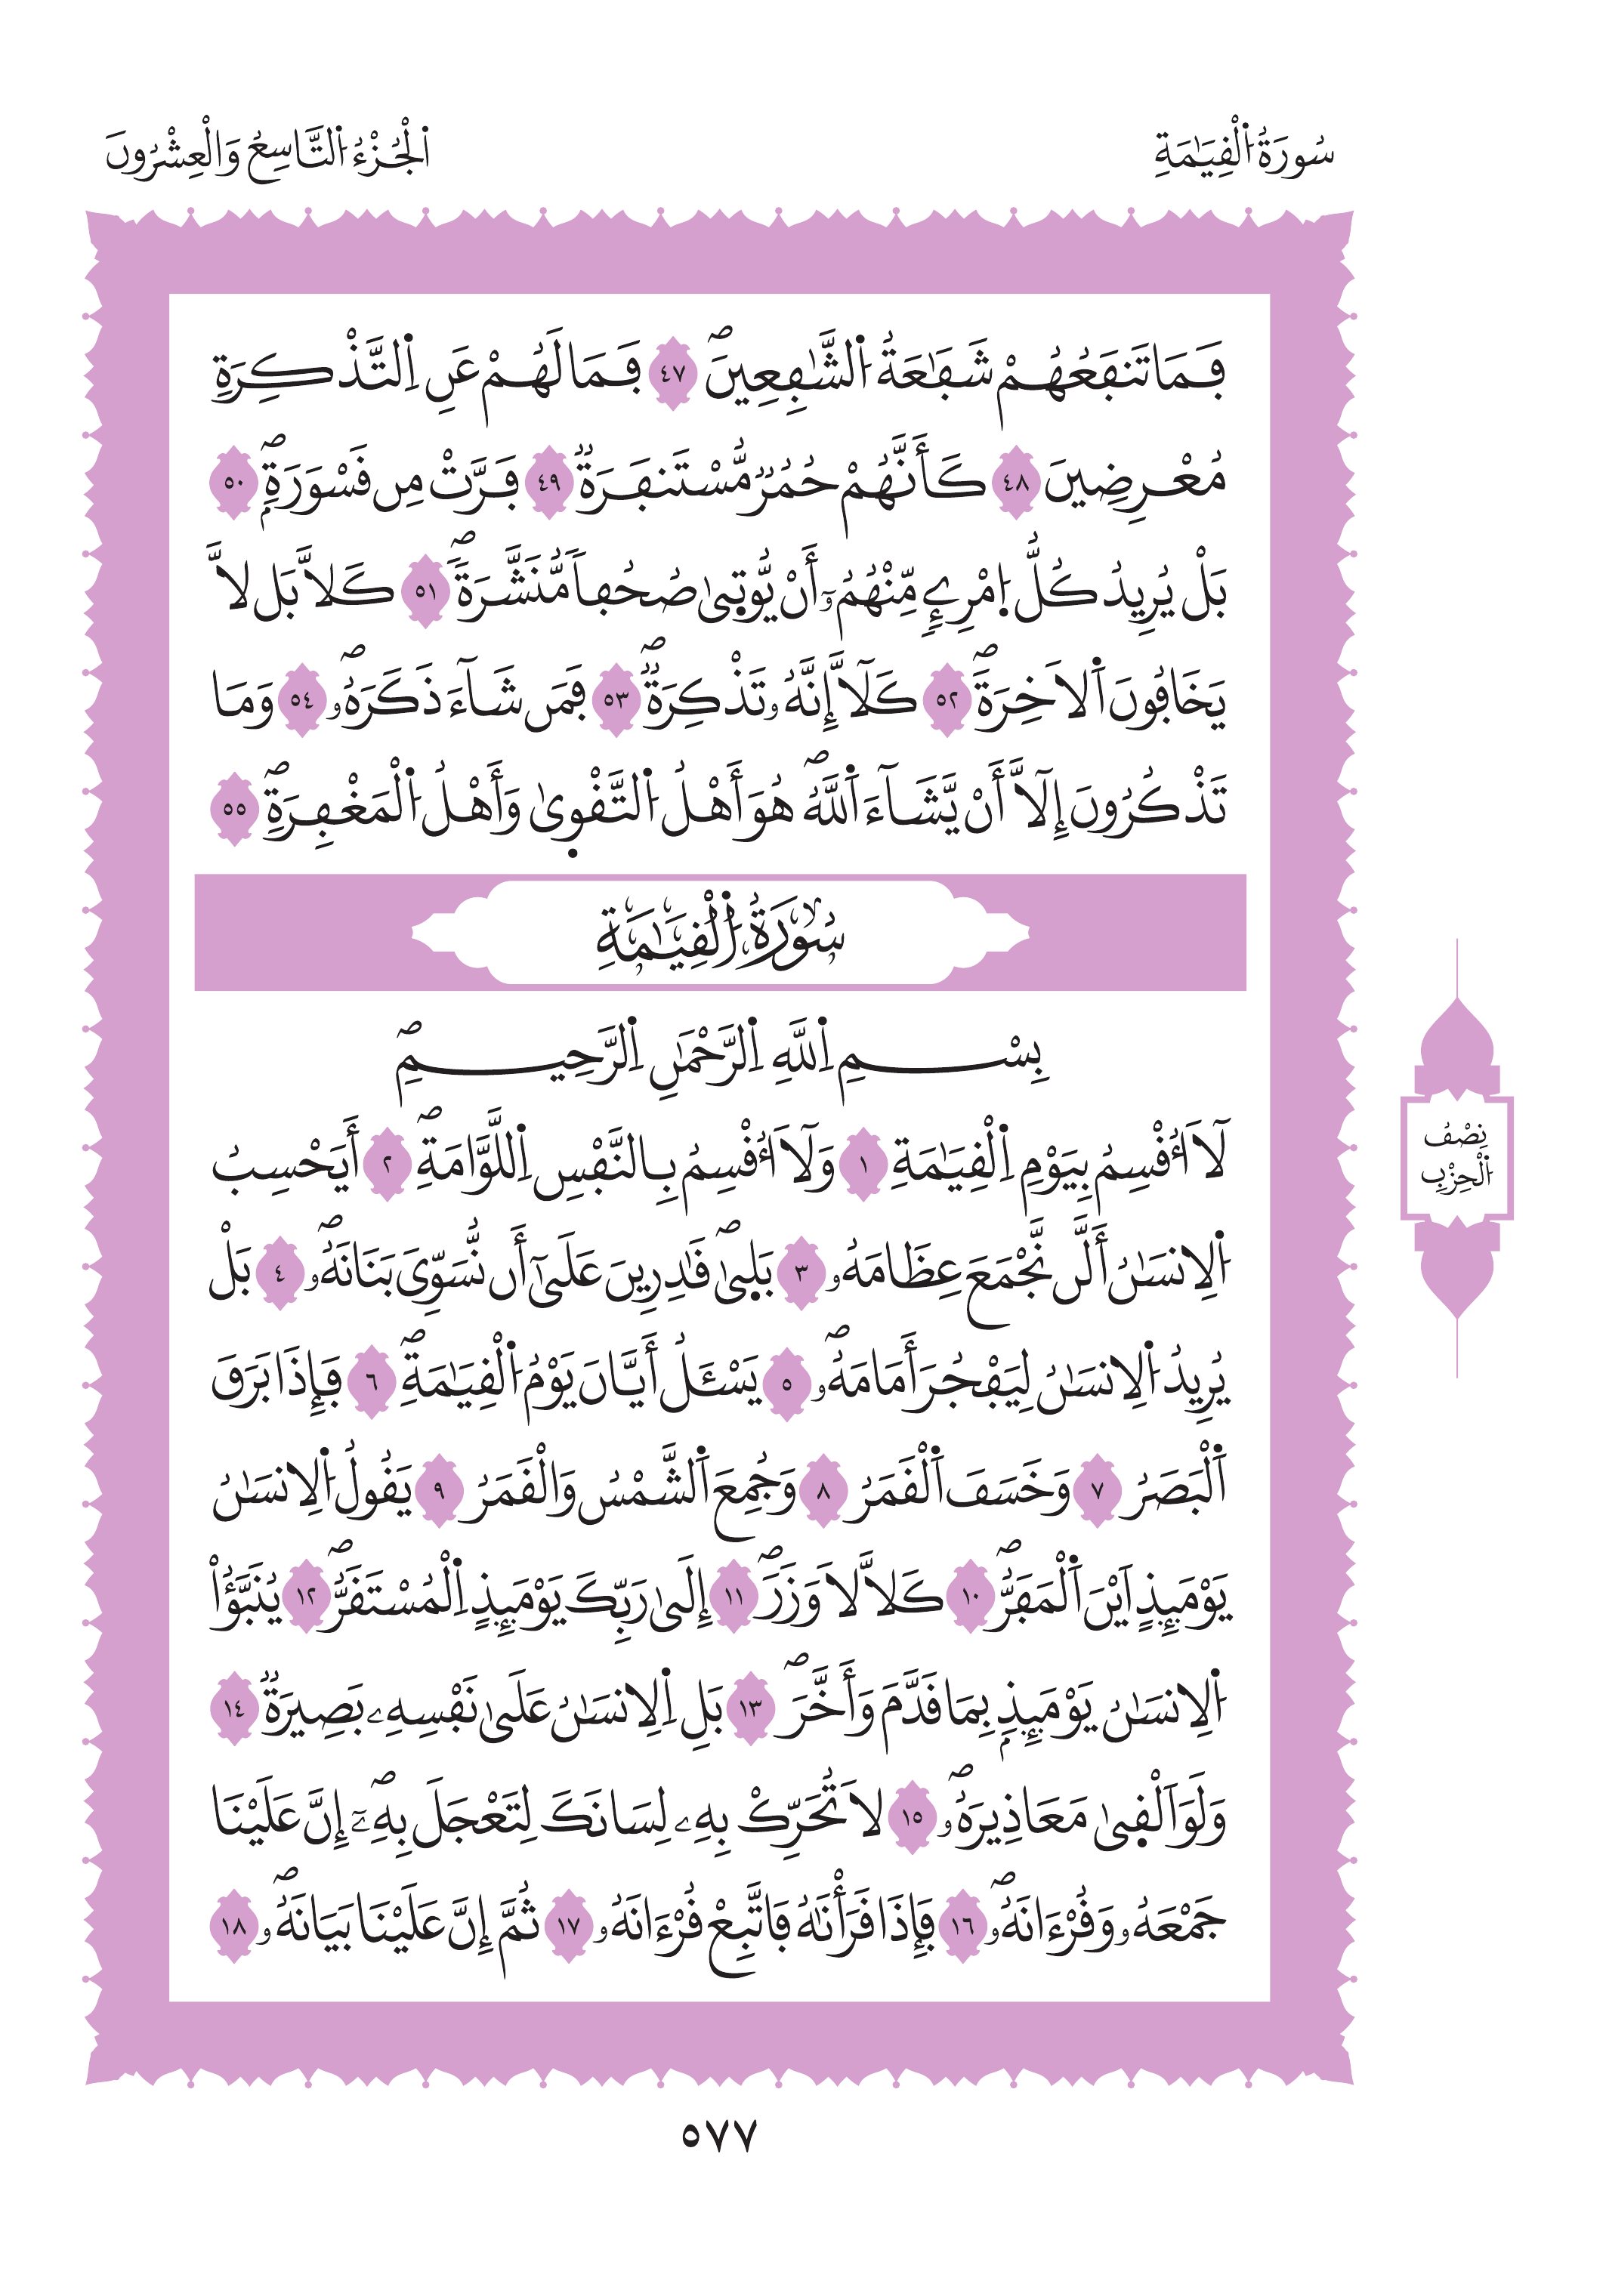 سُورَةُ اُ۬لْقِيَٰمَةِ
اَ۬لْجُزْءُ اُ۬لتَّاسِعُ وَالْعِشْرُونَ
فَمَا تَنفَعُهُمْ شَفَٰعَةُ اُ۬لشَّٰفِعِينَۖ ٤٧ فَمَا لَهُمْ عَنِ اِ۬لتَّذْكِرَةِ
مُعْرِضِينَ ٤٨ كَأَنَّهُمْ حُمُرٞ مُّسْتَنفَرَةٞ ٤٩ فَرَّتْ مِن قَسْوَرَةِۢۖ ٥٠
بَلْ يُرِيدُ كُلُّ اُ۪مْرِےٕٖ مِّنْهُمُۥٓ أَنْ يُّوت۪يٰ صُحُفاٗ مُّنَشَّرَةٗۖ ٥١ كَلاَّ بَل لاَّ
يَخَافُونَ اَ۬لَاخِرَةَۖ ٥٢ كَلَّآ إِنَّهُۥ تَذْكِرَةٞۖ ٥٣ فَمَن شَآءَ ذَكَرَهُۥۖ ٥٤ وَمَا
تَذْكُرُونَ إِلَّآ أَنْ يَّشَآءَ اَ۬للَّهُۖ هُوَ أَهْلُ اُ۬لتَّقْو۪يٰ وَأَهْلُ اُ۬لْمَغْفِرَةِۖ ٥٥
سُورَةُ اُ۬لْقِيَٰمَةِ
بِسْمِ اِ۬للَّهِ اِ۬لرَّحْمَٰنِ اِ۬لرَّحِيمِۖ
لَآ أُقْسِمُ بِيَوْمِ اِ۬لْقِيَٰمَةِ ١ وَلَآ أُقْسِمُ بِالنَّفْسِ اِ۬للَّوَّامَةِۖ ٢ أَيَحْسِبُ
اُ۬لِانسَٰنُ أَلَّن نَّجْمَعَ عِظَامَهُۥ ٣ بَل۪يٰۖ قَٰدِرِينَ عَلَىٰٓ أَن نُّسَوِّيَ بَنَانَهُۥۖ ٤ بَلْ
يُرِيدُ اُ۬لِانسَٰنُ لِيَفْجُرَ أَمَامَهُۥۖ ٥ يَسْـَٔلُ أَيَّانَ يَوْمُ اُ۬لْقِيَٰمَةِۖ ٦ فَإِذَا بَرَقَ
اَ۬لْبَصَرُ ٧ وَخَسَفَ اَ۬لْقَمَرُ ٨ وَجُمِعَ اَ۬لشَّمْسُ وَالْقَمَرُ ٩ يَقُولُ اُ۬لِانسَٰنُ
يَوْمَئِذٍ اَيْنَ اَ۬لْمَفَرُّۖ ١٠ كَلاَّ لَا وَزَرَۖ ١١ إِلَىٰ رَبِّكَ يَوْمَئِذٍ اِ۬لْمُسْتَقَرُّۖ ١٢ يُنَبَّؤُاْ
اُ۬لِانسَٰنُ يَوْمَئِذِۢ بِمَا قَدَّمَ وَأَخَّرَۖ ١٣ بَلِ اِ۬لِانسَٰنُ عَلَىٰ نَفْسِهِۦ بَصِيرَةٞ ١٤
وَلَوَ اَلْق۪يٰ مَعَاذِيرَهُۥۖ ١٥ لَا تُحَرِّكْ بِهِۦ لِسَانَكَ لِتَعْجَلَ بِهِۦٓۖ إِنَّ عَلَيْنَا
جَمْعَهُۥ وَقُرْءَانَهُۥۖ ١٦ فَإِذَا قَرَأْنَٰهُ فَاتَّبِعْ قُرْءَانَهُۥ ١٧ ثُمَّ إِنَّ عَلَيْنَا بَيَانَهُۥۖ ١٨
نِصْفُ
اُ۬لْحِزْبِ
٥٧٧